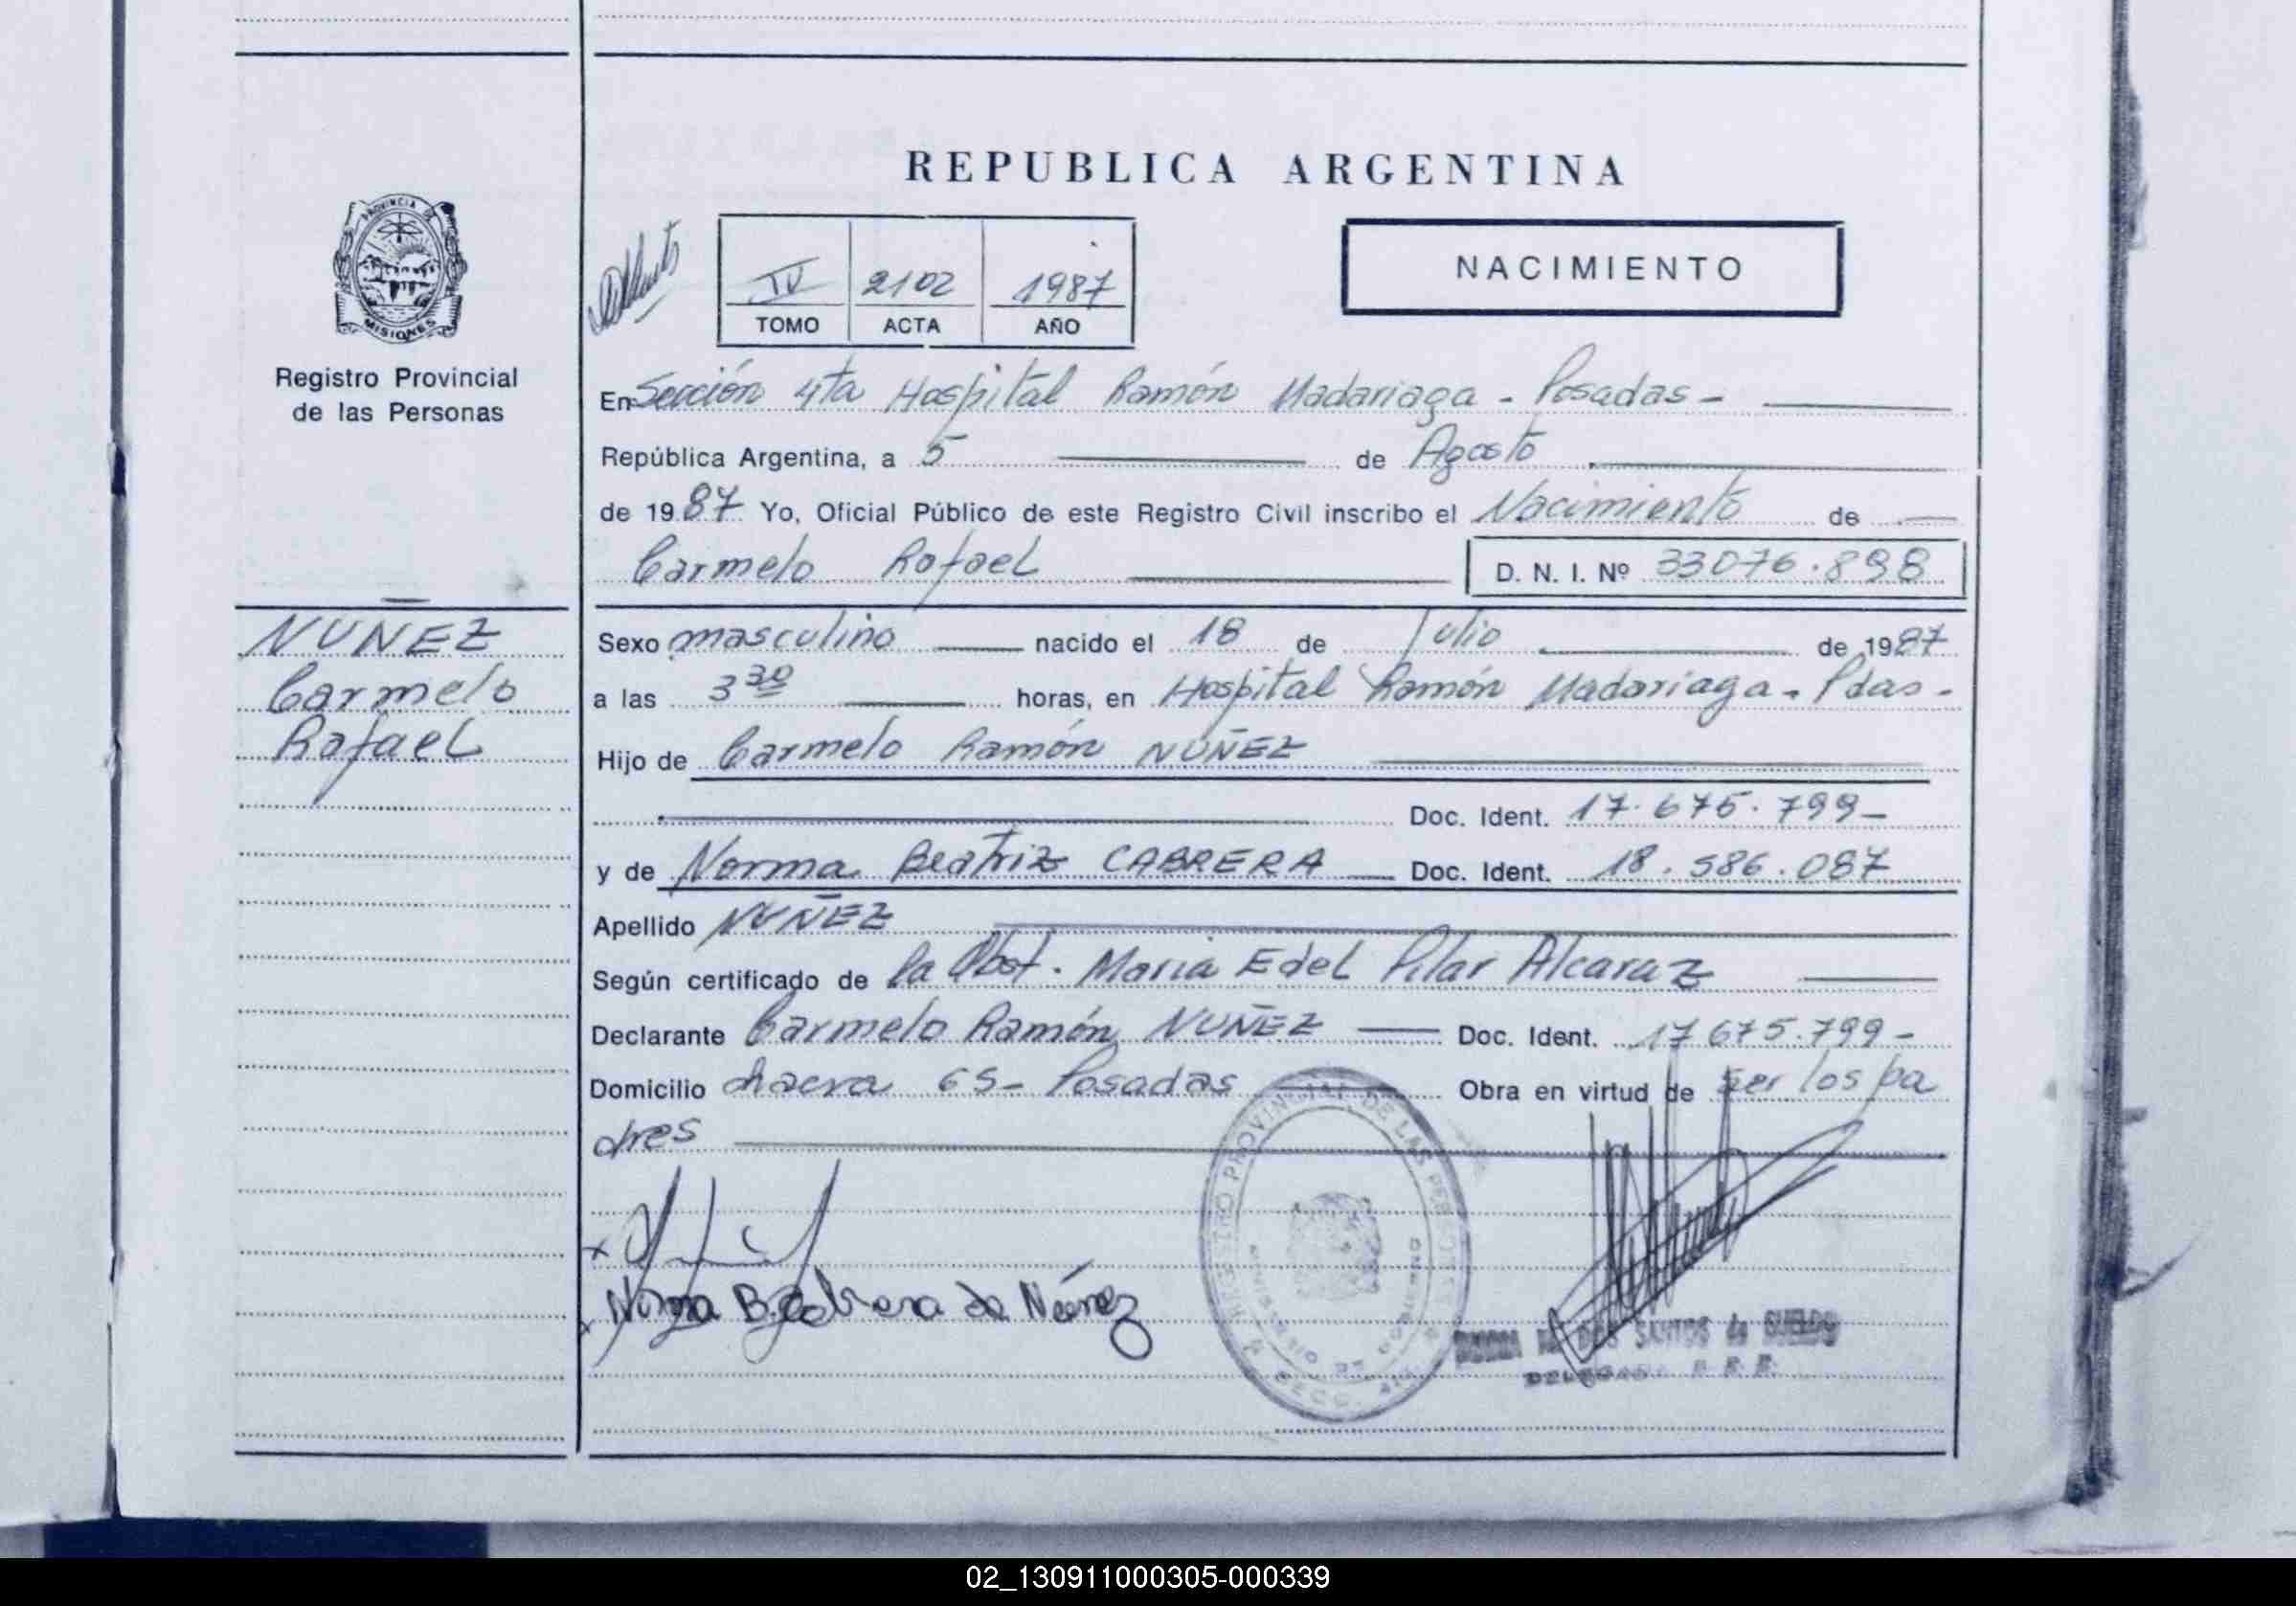 REPUBLICA ARGENTINA
PROVINCIA DE
MISIONES
Registro Provincial
de las Personas
IV 2102 1987
TOMO ACTA AÑO
NACIMIENTO
En Sección 4ta Hospital Ramón Madariaga - Posadas -
República Argentina, a 5 de Agosto
de 1987 Yo, Oficial Público de este Registro Civil inscribo el Nacimiento de
Carmelo Rafael D. N. I. Nº 33076.898
NUÑEZ
Carmelo
Rafael
Sexo masculino nacido el 18 de Julio de 1987
a las 3 30 horas, en Hospital Ramón Madariaga - Pdas -
Hijo de Carmelo Ramón NUÑEZ
Doc. Ident. 17.675.799-
y de Norma Beatriz CABRERA Doc. Ident. 18.586.087
Apellido NUÑEZ
Según certificado de la Obst. Maria Edel Pilar Alcaraz
Declarante Carmelo Ramón NUÑEZ Doc. Ident. 17675.799-
Domicilio chacra 65- Posadas Obra en virtud de ser los pa
dres
Norma B. Cabrera de Núñez
REGISTRO PROVINCIAL DE LAS PERSONAS
MINISTERIO DE GOBIERNO
DOS SANTOS de SUELDO
DELEGADA
02_130911000305-000339